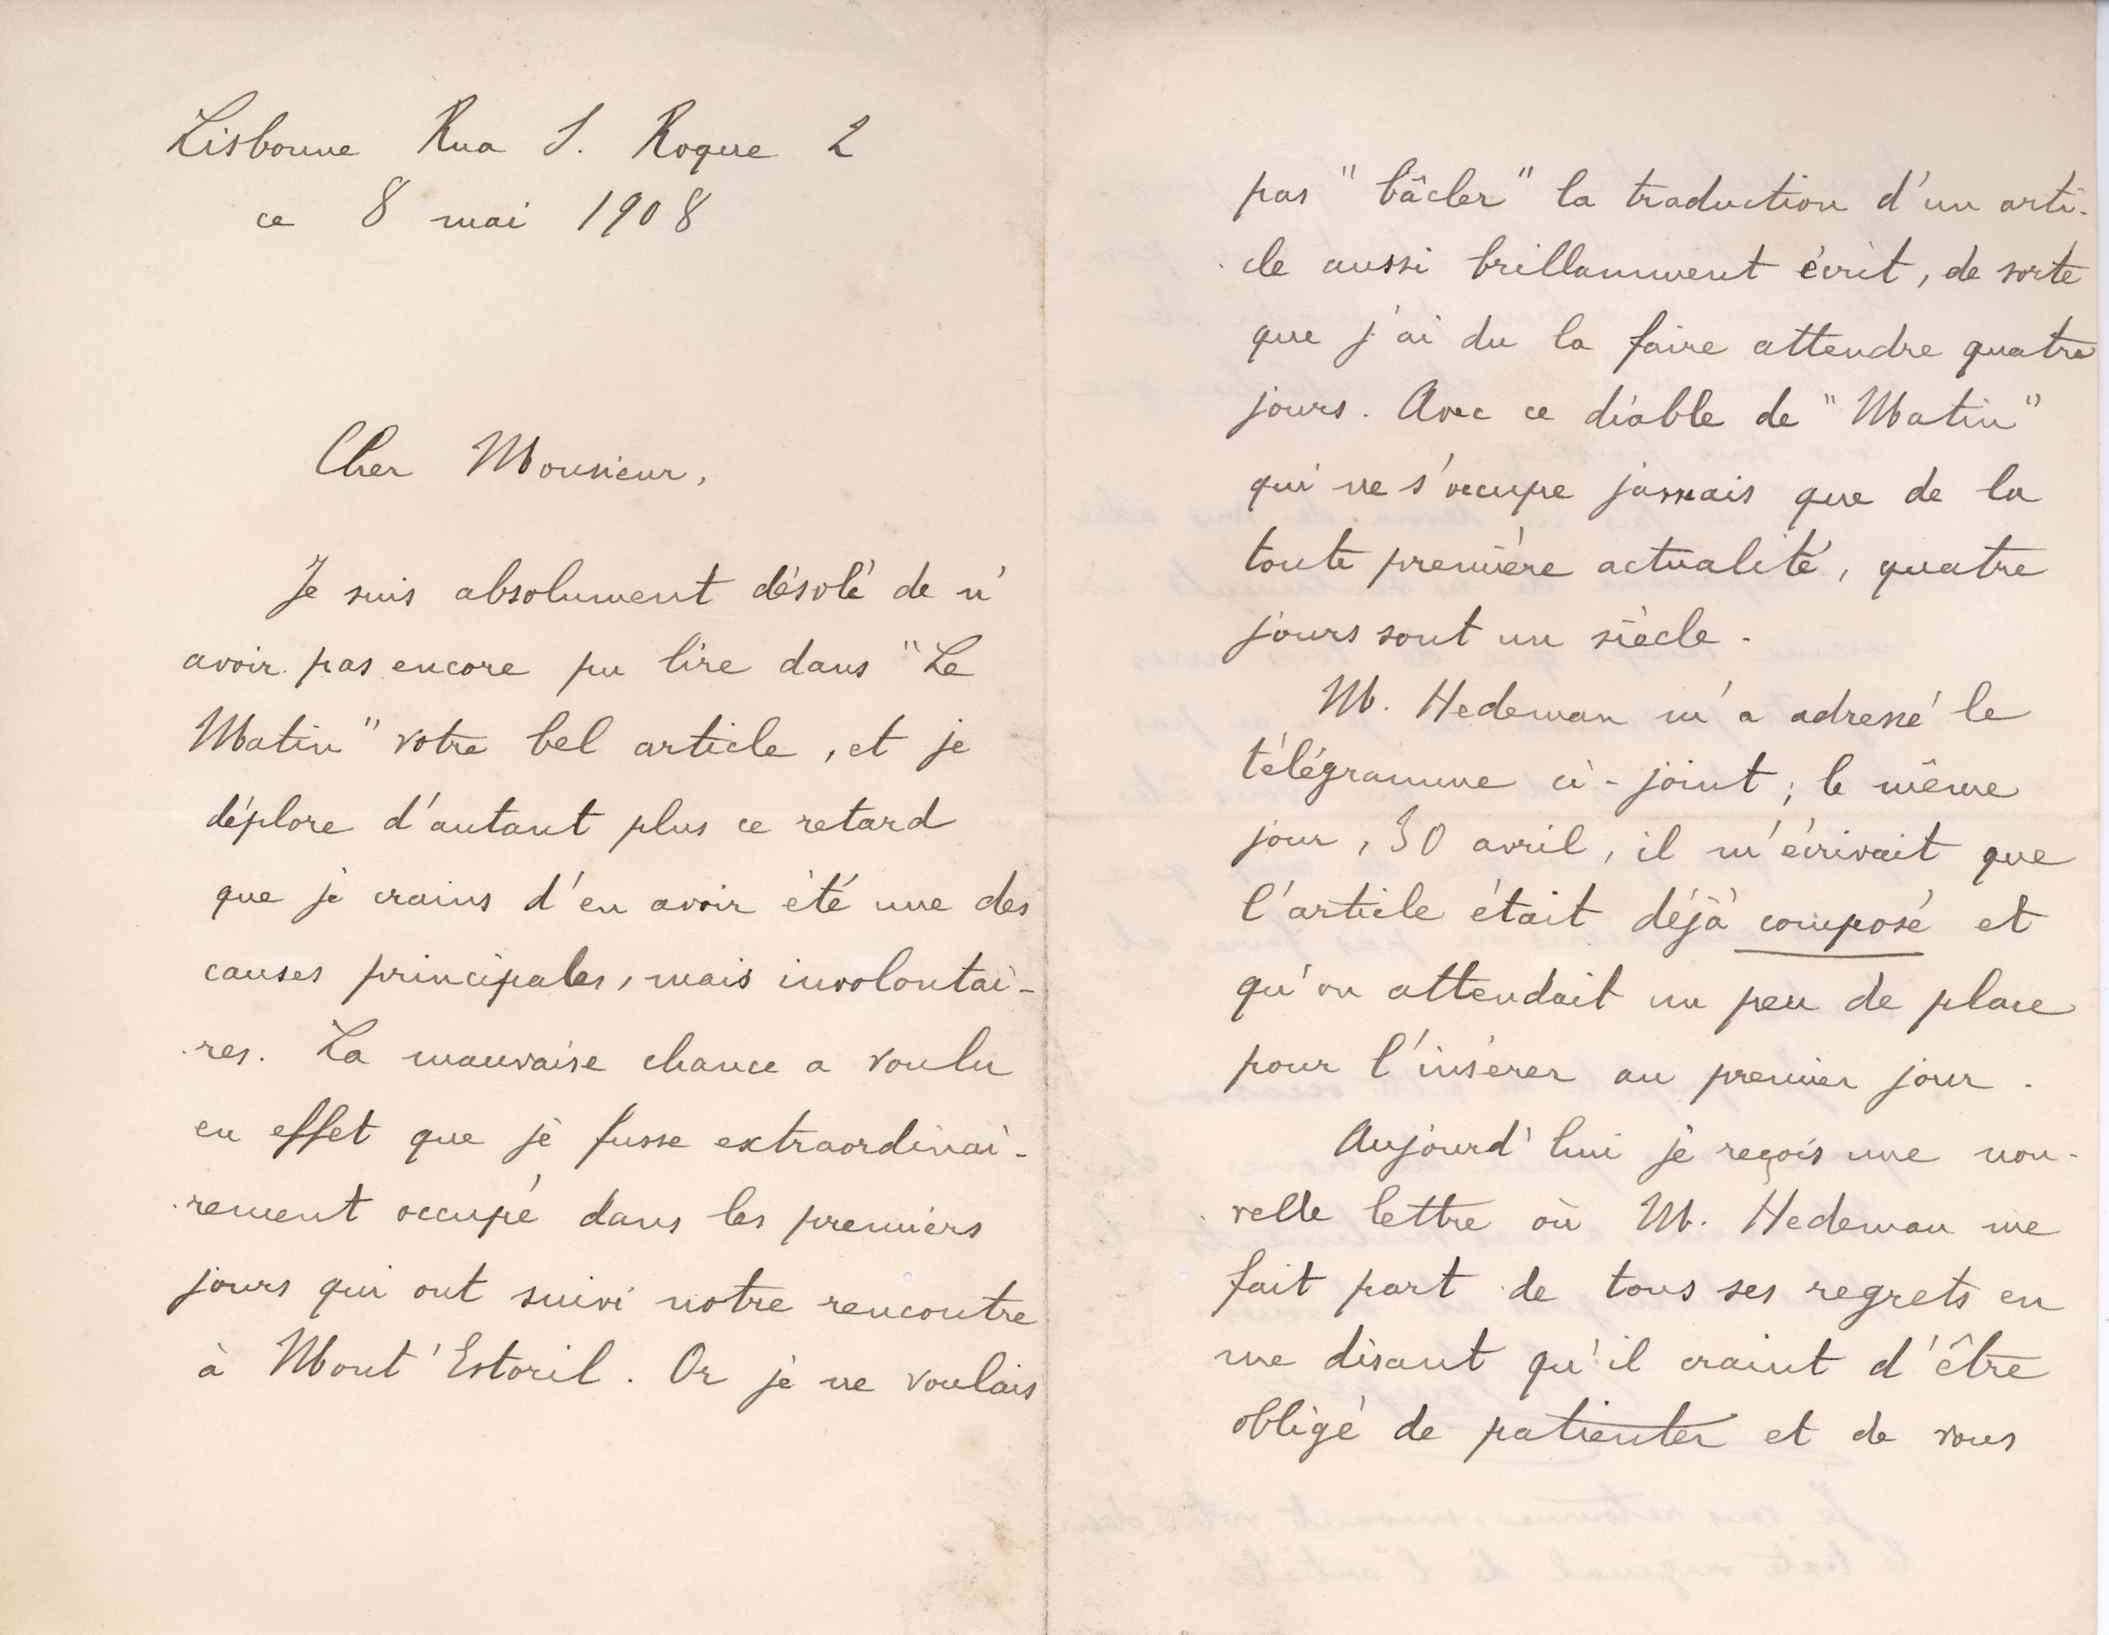 Lisbonne Rua S. Roque 2
ce 8 mai 1908
Cher Monsieur,
Je suis absolument désolé de n'
avoir pas encore pu lire dans "Le
Matin" votre bel article, et je
déplore d'autant plus ce retard
que je crains d'en avoir été une des
causes principales, mais involontai-
res. La mauvaise chance a voulu
en effet que je fusse extraordinai-
rement occupé dans les premiers
jours qui ont suivi notre rencontre
à Mont'Estoril. Or je ne voulais
pas "bâcler" la traduction d'un arti-
cle aussi brillamment écrit, de sorte
que j'ai du la faire attendre quatre
jours. Avec ce diable de "Matin"
qui ne s'occupe jamais que de la
toute première actualité, quatre
jours sont un siècle.
M. Hedeman m'a adressé le
télégramme ci-joint; le même
jour, 30 avril, il m'écrivait que
l'article était déjà composé et
qu'on attendait un peu de place
pour l'insérer au premier jour.
Aujourd'hui je reçois une nou-
velle lettre où M. Hedeman me
fait part de tous ses regrets en
me disant qu'il craint d'être
obligé de patienter et de vous